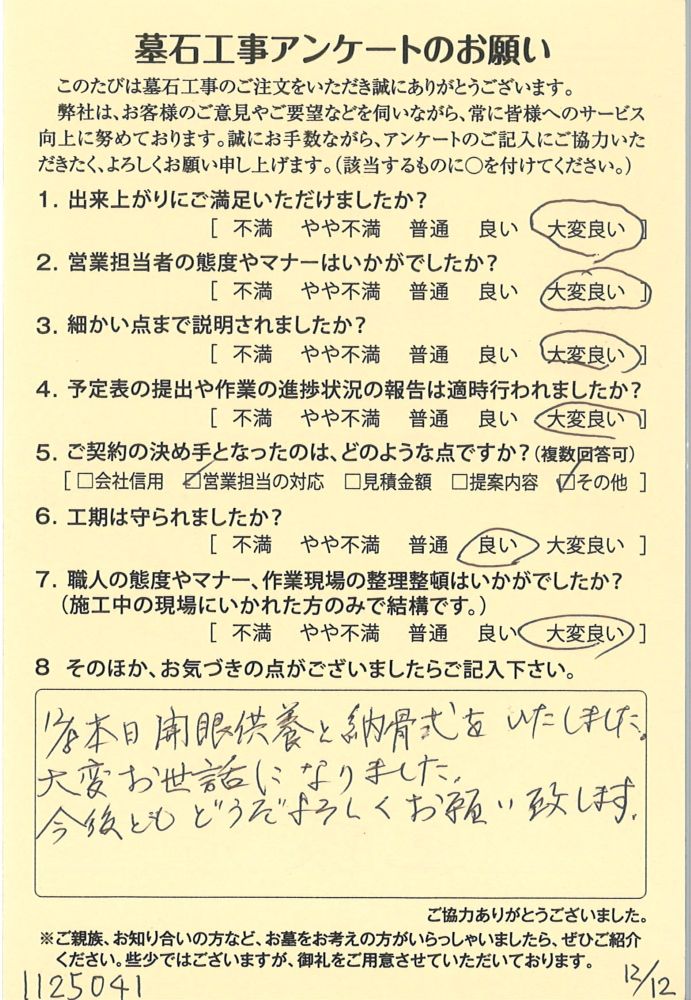 墓石工事アンケートのお願い
このたびは墓石工事のご注文をいただき誠にありがとうございます。
弊社は、お客様のご意見やご要望などを伺いながら、常に皆様へのサービス
向上に努めております。誠にお手数ながら、アンケートのご記入にご協力いた
だきたく、よろしくお願い申し上げます。（該当するものに○を付けてください。）
1. 出来上がりにご満足いただけましたか？
[ 不満 やや不満 普通 良い 大変良い ]
2. 営業担当者の態度やマナーはいかがでしたか？
[ 不満 やや不満 普通 良い 大変良い ]
3. 細かい点まで説明されましたか？
[ 不満 やや不満 普通 良い 大変良い ]
4. 予定表の提出や作業の進捗状況の報告は適時行われましたか？
[ 不満 やや不満 普通 良い 大変良い ]
5. ご契約の決め手となったのは、どのような点ですか？（複数回答可）
[ □会社信用 ☑営業担当の対応 □見積金額 □提案内容 ☑その他 ]
6. 工期は守られましたか？
[ 不満 やや不満 普通 良い 大変良い ]
7. 職人の態度やマナー、作業現場の整理整頓はいかがでしたか？
（施工中の現場にいかれた方のみで結構です。）
[ 不満 やや不満 普通 良い 大変良い ]
8 そのほか、お気づきの点がございましたらご記入下さい。
本日開眼供養と納骨式をいたしました。
大変お世話になりました。
今後ともどうぞよろしくお願い致します。
ご協力ありがとうございました。
※ご親族、お知り合いの方など、お墓をお考えの方がいらっしゃいましたら、ぜひご紹介
ください。些少ではございますが、御礼をご用意させていただいております。
1125041
12/12